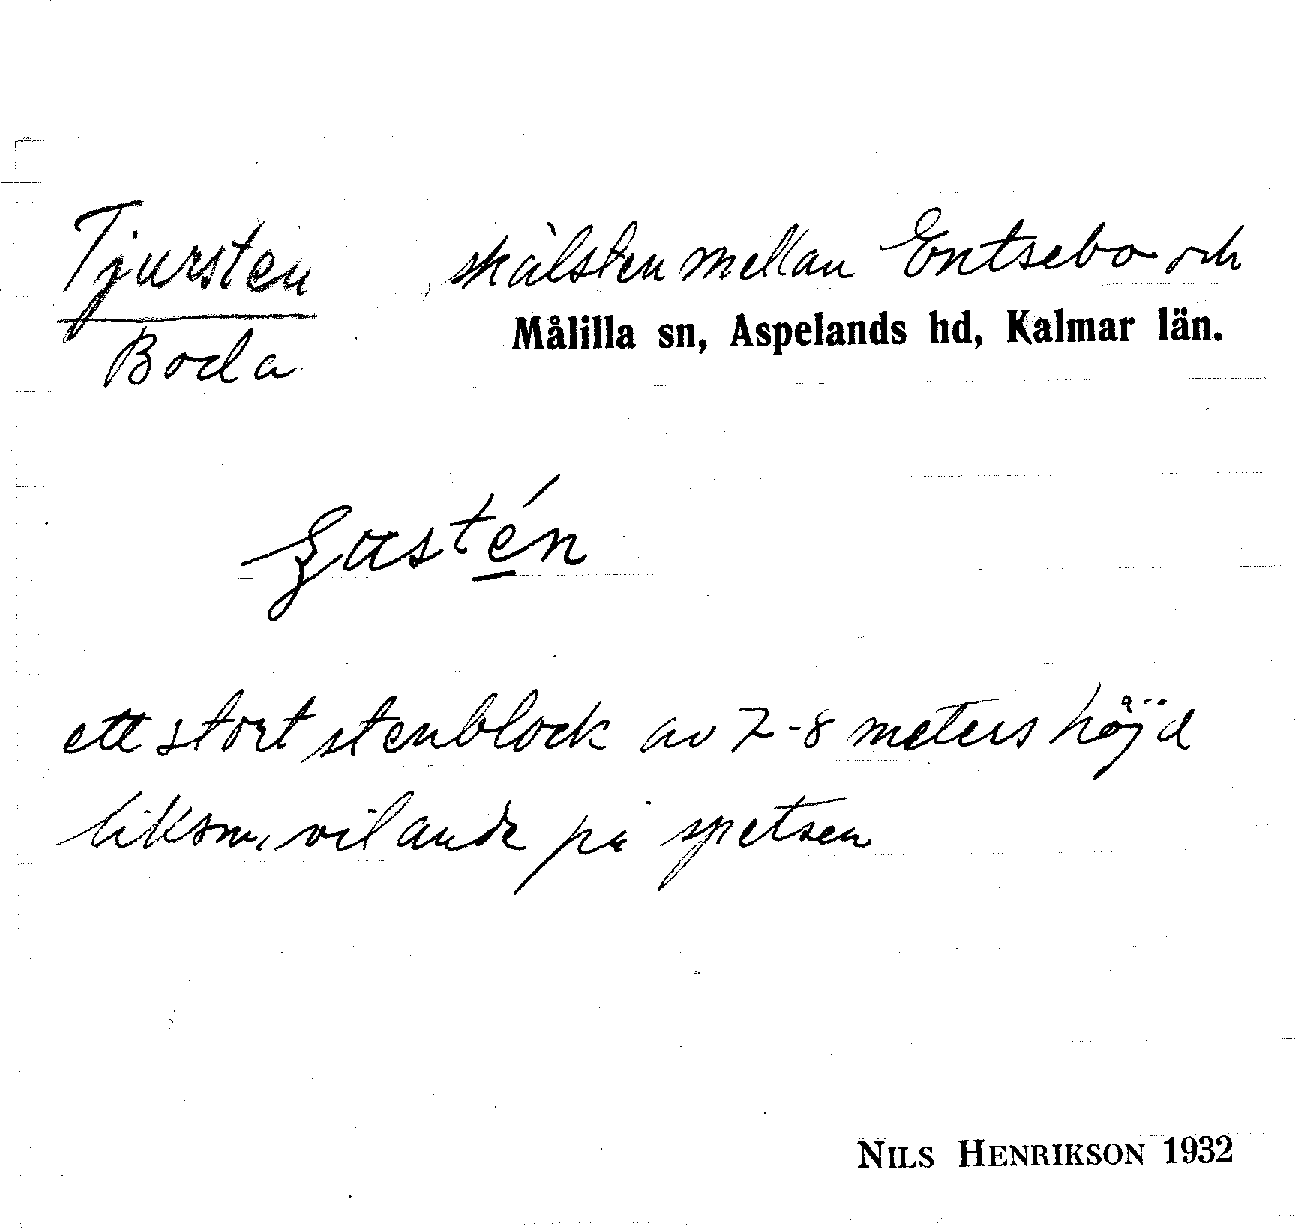 Tjursten , skälsten mellan Entsebo och
Boda Målilla sn, Aspelands hd, Kalmar län.
ett stort stenblock av 7-8 meters höjd
liksm. vilande på spetsen
NILS HENRIKSON 1932